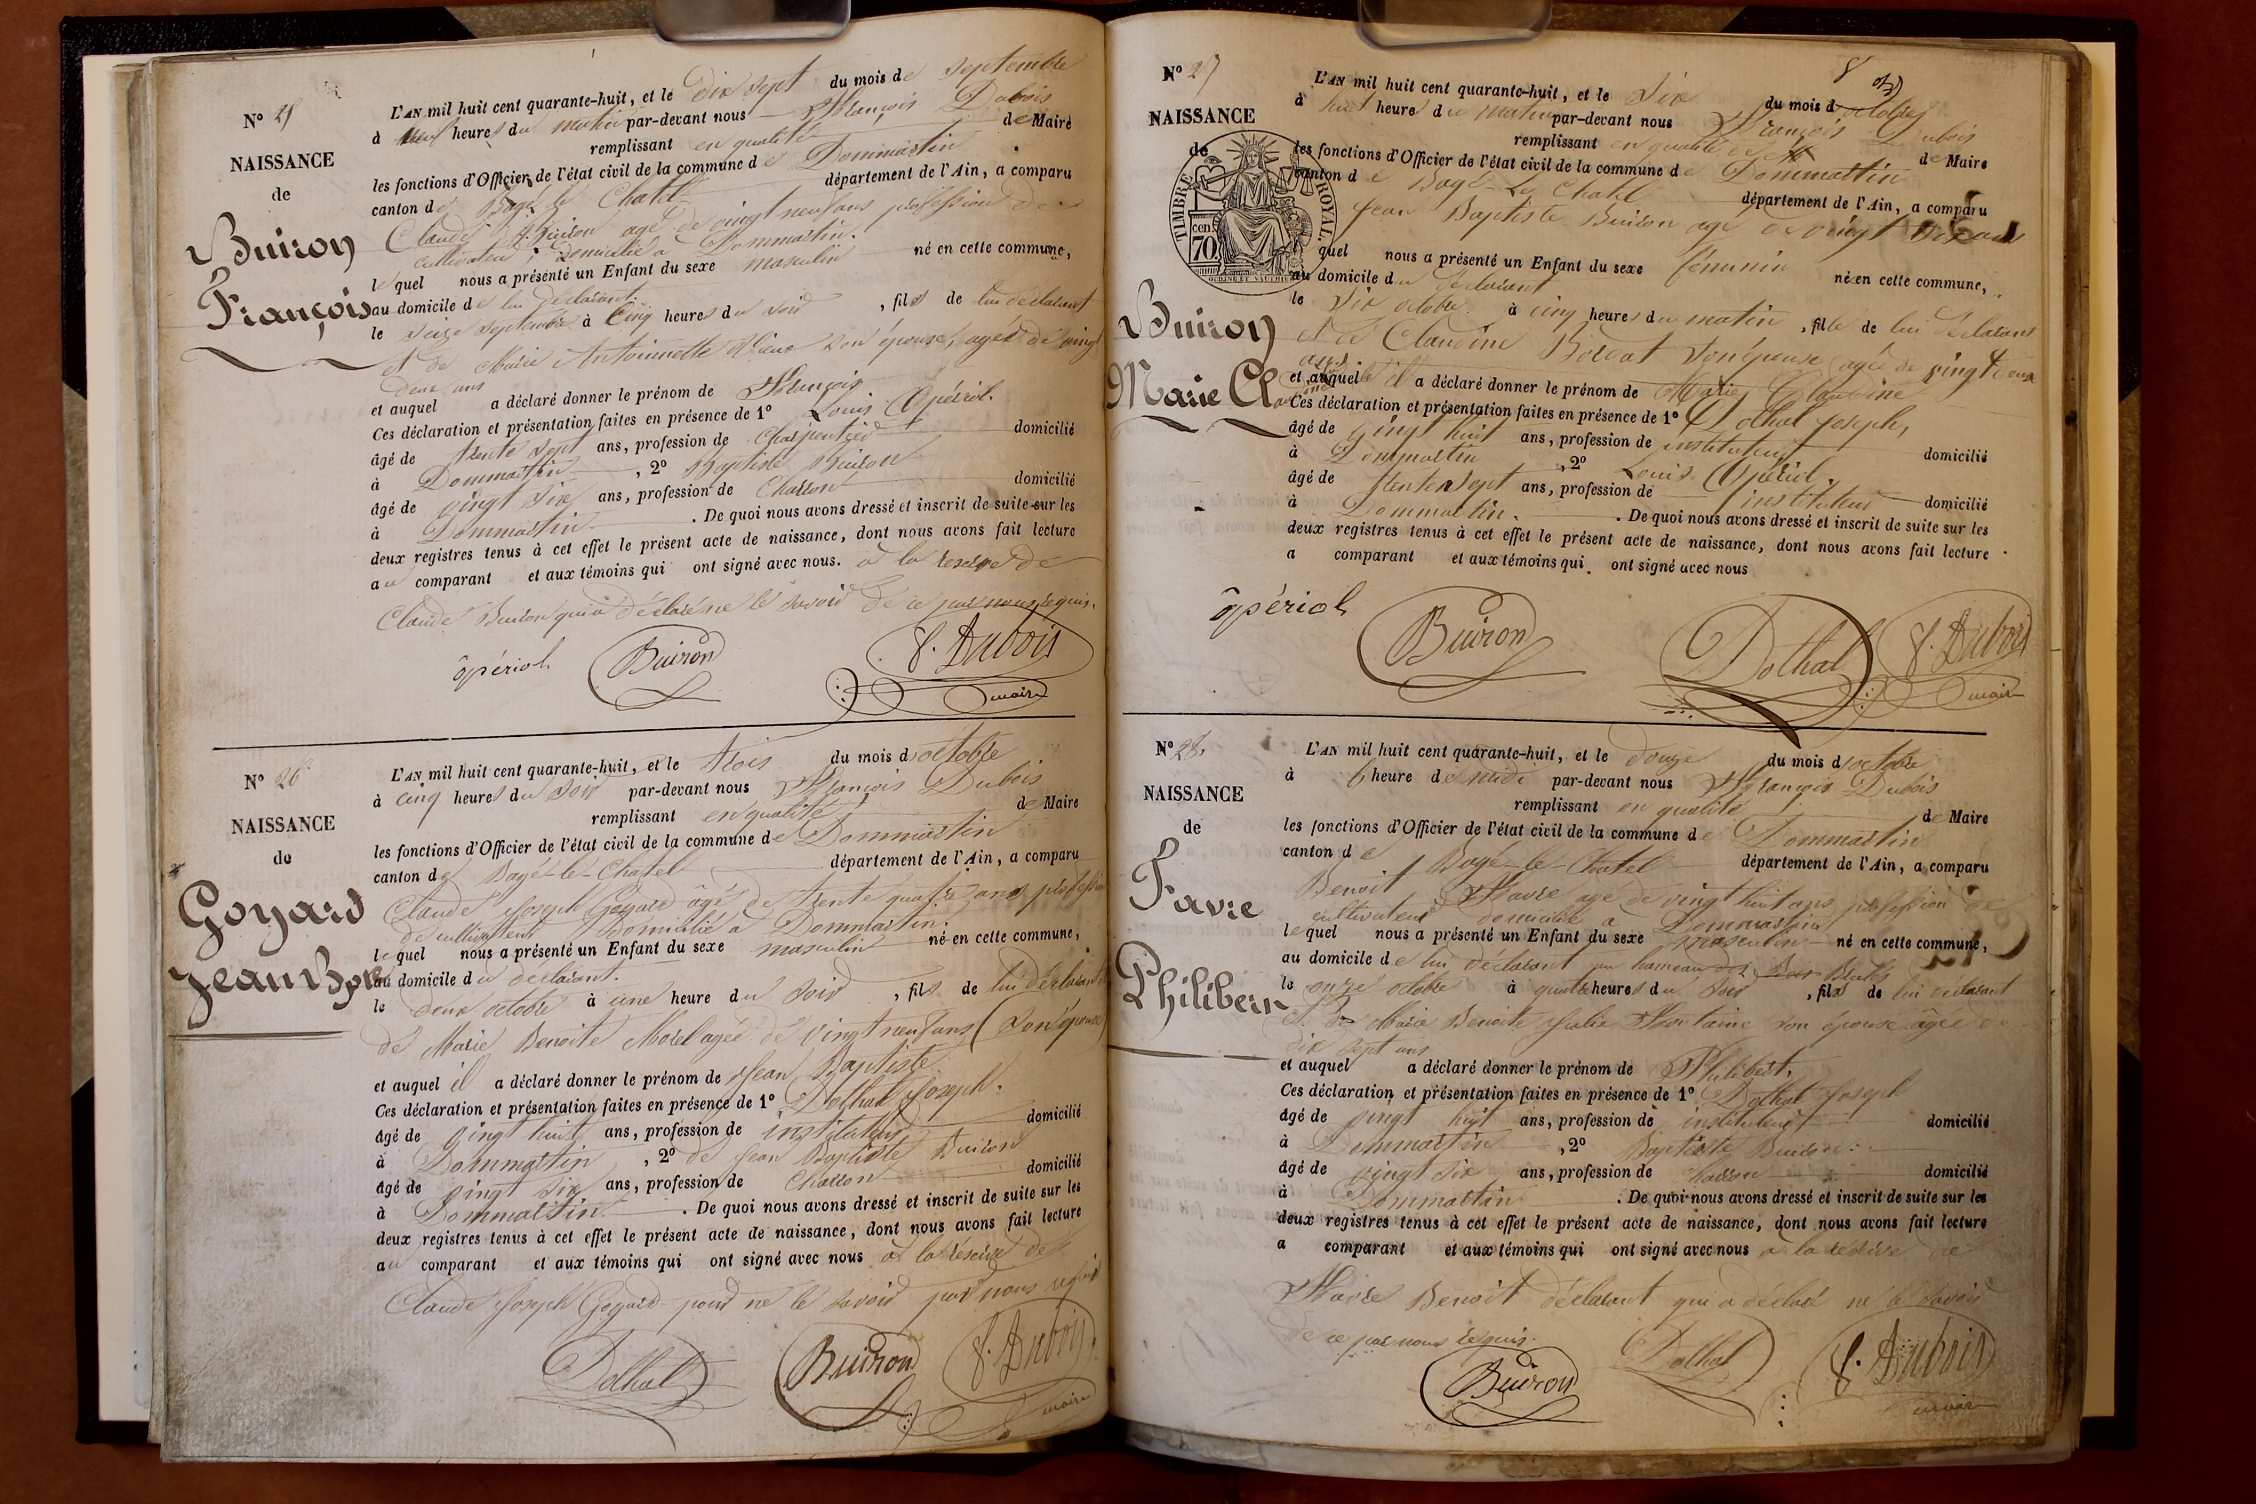 N° 25
NAISSANCE
de
Buiron
François
L'AN mil huit cent quarante-huit, et le Dix sept du mois de septembre
à heures du matin par-devant nous François Dubois
remplissant en qualité de Maire
les fonctions d'Officier de l'état civil de la commune de Dommartin
canton de Bagé le Chatel département de l'Ain, a comparu
Claude Buiron agé de vingt neuf ans profession de
cultivateur, domicilié à Dommartin.
lequel nous a présenté un Enfant du sexe masculin né en cette commune,
au domicile de lui déclarant
le seize septembre à cinq heures du soir, fils de lui déclarant
et de Marie Antoinette son épouse, agée de vingt
deux ans
et auquel a déclaré donner le prénom de François
Ces déclaration et présentation faites en présence de 1° Louis Opériol.
âgé de trente sept ans, profession de Charpentier domicilié
à Dommartin, 2° Baptiste Buiron
âgé de vingt six ans, profession de Charron domicilié
à Dommartin. De quoi nous avons dressé et inscrit de suite sur les
deux registres tenus à cet effet le présent acte de naissance, dont nous avons fait lecture
au comparant et aux témoins qui ont signé avec nous. à la reserve de
Claude Buiron qui a déclaré ne le savoir de ce par nous requis.
opériol Buiron F. Dubois
maire
N° 26
NAISSANCE
de
Goyard
Jean Bpte
L'AN mil huit cent quarante-huit, et le trois du mois d'octobre
à cinq heures du soir par-devant nous François Dubois
remplissant en qualité de Maire
les fonctions d'Officier de l'état civil de la commune de Dommartin
canton de Bagé-le-Chatel département de l'Ain, a comparu
Claude Joseph Goyard âgé de trente quatre ans profession
de cultivateur domicilié à Dommartin.
lequel nous a présenté un Enfant du sexe masculin né en cette commune,
au domicile du déclarant.
le deux octobre à une heure du soir, fils de lui déclarant
de Marie Benoite Morel agée de vingt neuf ans (son épouse)
et auquel il a déclaré donner le prénom de Jean Baptiste
Ces déclaration et présentation faites en présence de 1° Dolhat Joseph.
âgé de vingt huit ans, profession de instituteur domicilié
à Dommartin, 2° de Jean Baptiste Buiron
âgé de vingt six ans, profession de Charron domicilié
à Dommartin. De quoi nous avons dressé et inscrit de suite sur les
deux registres tenus à cet effet le présent acte de naissance, dont nous avons fait lecture
au comparant et aux témoins qui ont signé avec nous à la réserve de
Claude Joseph Goyard pour ne le savoir par nous requis
Dolhat Buiron F. Dubois
maire
8
N° 27
NAISSANCE
de
TIMBRE ROYAL
cen. 70
Buiron
Marie Claudine
L'AN mil huit cent quarante-huit, et le six du mois d'octobre
à huit heure du matin par-devant nous François Dubois
remplissant en qualité de Maire
les fonctions d'Officier de l'état civil de la commune de Dommartin
canton de Bagé-Le Chatel département de l'Ain, a comparu
Jean Baptiste Buiron agé de vingt six ans
quel nous a présenté un Enfant du sexe féminin né en cette commune,
au domicile du déclarant
le six octobre à cinq heures du matin, fille de lui déclarant
et de Claudine son épouse agée de vingt deux
ans
et auquel il a déclaré donner le prénom de Marie Claudine
Ces déclaration et présentation faites en présence de 1° Dolhat Joseph,
âgé de vingt huit ans, profession de instituteur domicilié
à Dommartin, 2° Louis Opériol.
âgé de trente sept ans, profession de instituteur domicilié
à Dommartin. De quoi nous avons dressé et inscrit de suite sur les
deux registres tenus à cet effet le présent acte de naissance, dont nous avons fait lecture
a comparant et aux témoins qui ont signé avec nous
opériol Buiron Dolhat F. Dubois
maire
N° 28.
NAISSANCE
de
Favre
Philibert
L'AN mil huit cent quarante-huit, et le douze du mois d'octobre
à heure de midi par-devant nous François Dubois
remplissant en qualité de Maire
les fonctions d'Officier de l'état civil de la commune de Dommartin
canton de Bagé-le-Chatel département de l'Ain, a comparu
Benoit Favre agé de vingt huit ans profession de
cultivateur domicilié à Dommartin
lequel nous a présenté un Enfant du sexe masculin né en cette commune,
au domicile de lui déclarant au hameau des
le onze octobre à quatre heures du soir, fils de lui déclarant
et de Marie Benoite Julie Fontaine son épouse âgée de
dix sept ans
et auquel a déclaré donner le prénom de Philibert.
Ces déclaration et présentation faites en présence de 1° Dolhat Joseph
âgé de vingt huit ans, profession de instituteur domicilié
à Dommartin, 2° Baptiste Buiron.
âgé de vingt six ans, profession de charron domicilié
à Dommartin. De quoi nous avons dressé et inscrit de suite sur les
deux registres tenus à cet effet le présent acte de naissance, dont nous avons fait lecture
a comparant et aux témoins qui ont signé avec nous à la réserve de
Favre Benoit déclarant qui a déclaré ne le savoir
de ce par nous requis.
Buiron Dolhat F. Dubois
maire